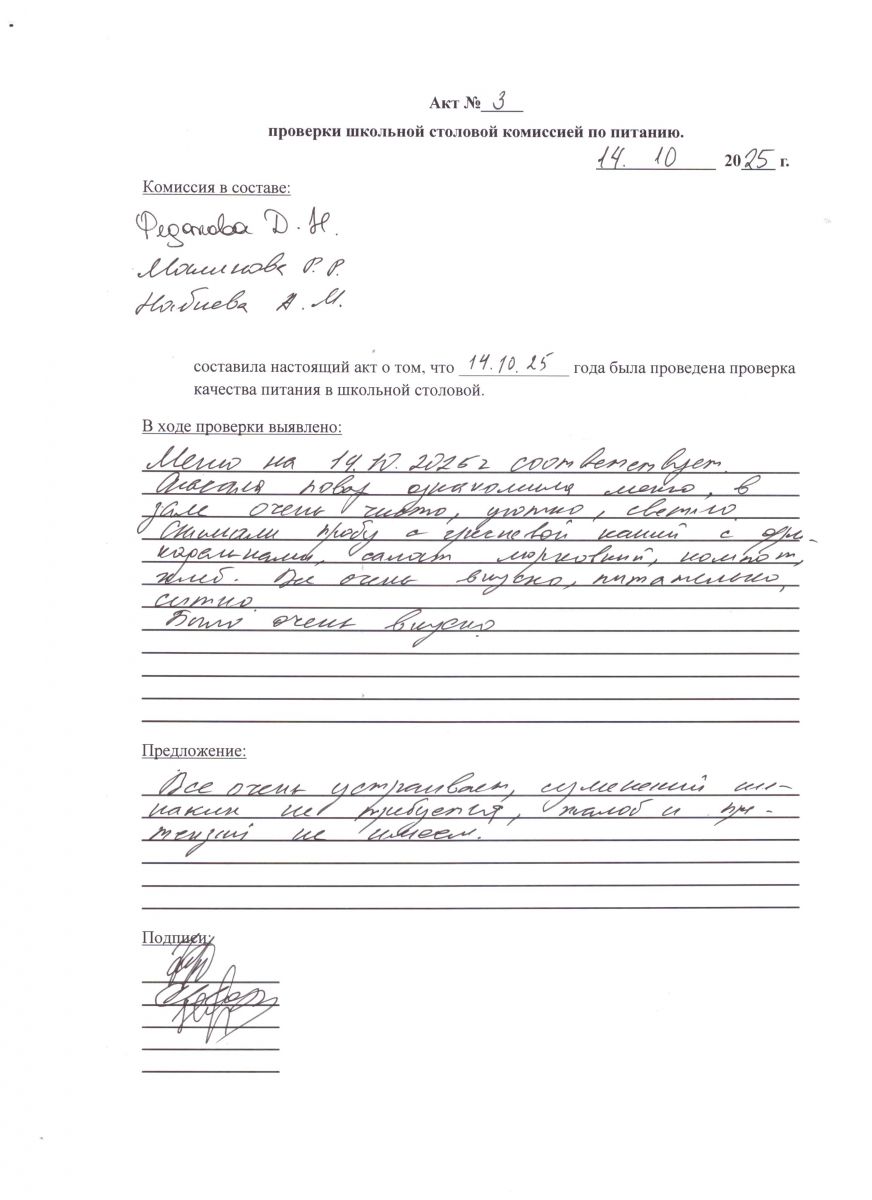 Акт № 3
проверки школьной столовой комиссией по питанию.
14. 10 2025 г.
Комиссия в составе:
Д. Н.
Маликова Р. Р.
Набиева А. М.
составила настоящий акт о том, что 14.10.25 года была проведена проверка
качества питания в школьной столовой.
В ходе проверки выявлено:
Меню на 14.10.2025г соответствует.
повар ознакомила меню, в
зале очень чисто, уютно, светло.
Снимали пробу с гречневой кашей с фри-
кадельками, салат морковный, компот,
хлеб. Все очень вкусно, питательно,
сытно.
Было очень вкусно
Предложение:
Все очень устраивает, изменений ни-
каких не требуется, жалоб и пре-
тензий не имеем.
Подписи: